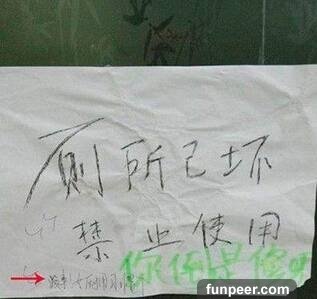 厕所已坏
禁止使用
你倒是修呀
funpeer.com